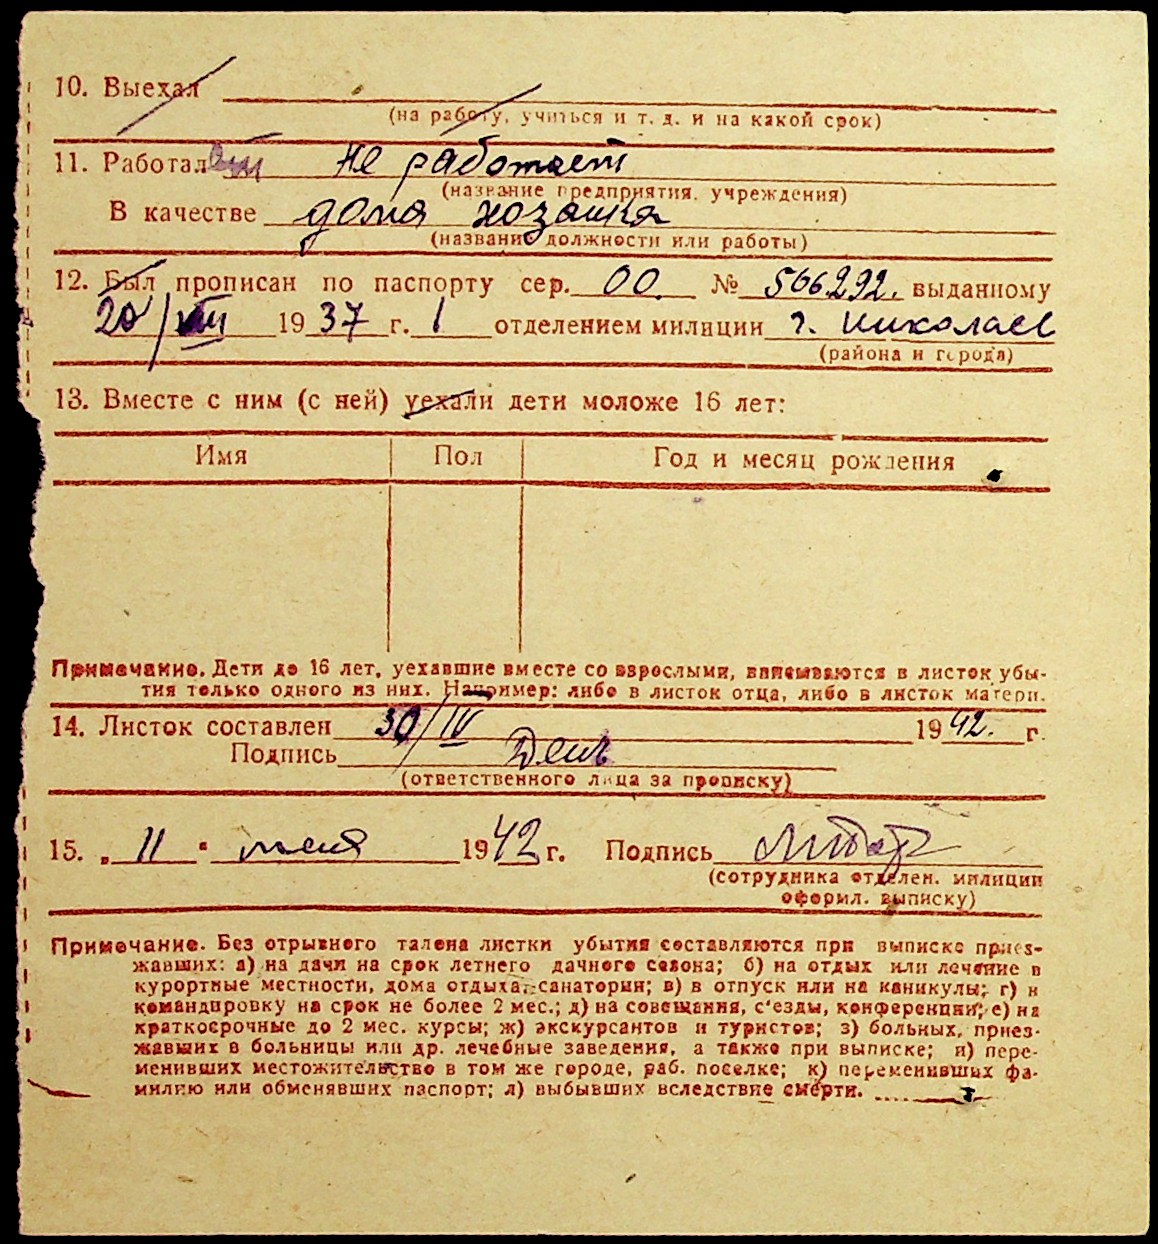 10. Выехал
(на работу, учиться и т. д. и на какой срок)
11. Работал не работает
(название предприятия, учреждения)
В качестве дома хозяйка
(название должности или работы)
12. Был прописан по паспорту сер. 00. № 566292. выданному
20/VIII 1937 г. 1 отделением милиции г. Николаев
(района и города)
13. Вместе с ним (с ней) уехали дети моложе 16 лет:
Имя Пол Год и месяц рождения
Примечание. Дети до 16 лет, уехавшие вместе со взрослыми, вписываются в листок убы-
тия только одного из них. Например: либо в листок отца, либо в листок матери.
14. Листок составлен 30/IV 1942. г.
Подпись
(ответственного лица за прописку)
15. „11“ мая 1942 г. Подпись
(сотрудника отделен. милиции
оформл. выписку)
Примечание. Без отрывного талона листки убытия составляются при выписке приез-
жавших: а) на дачи на срок летнего дачного сезона; б) на отдых или лечение в
курортные местности, дома отдыха, санатории; в) в отпуск или на каникулы; г) в
командировку на срок не более 2 мес.; д) на совещания, с'езды, конференции; е) на
краткосрочные до 2 мес. курсы; ж) экскурсантов и туристов; з) больных, приез-
жавших в больницы или др. лечебные заведения, а также при выписке; и) пере-
менивших местожительство в том же городе, раб. поселке; к) переменивших фа-
милию или обменявших паспорт; л) выбывших вследствие смерти.